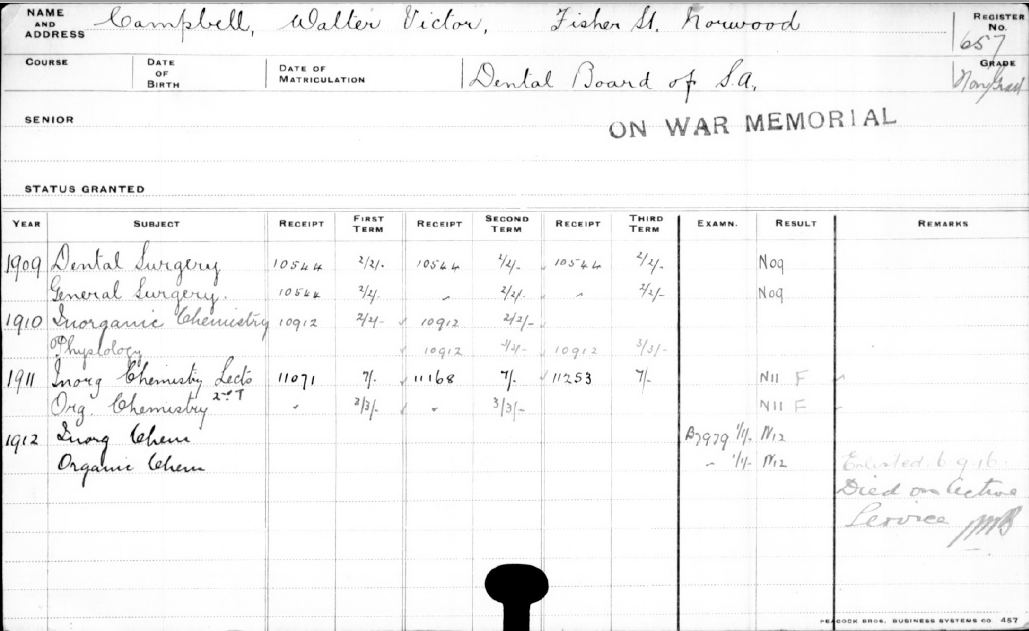 NAME AND ADDRESS Campbell, Walter Victor, Fisher St. Norwood REGISTER No. 657
COURSE DATE OF BIRTH DATE OF MATRICULATION Dental Board of S.A. GRADE Non/Grad
SENIOR ON WAR MEMORIAL
STATUS GRANTED
YEAR SUBJECT RECEIPT FIRST TERM RECEIPT SECOND TERM RECEIPT THIRD TERM EXAMN. RESULT REMARKS
1909 Dental Surgery 10544 2/2/- 10544 2/2/- 10544 2/2/- No9
General Surgery. 10544 2/2/- " 2/2/- " 2/2/- No9
1910 Inorganic Chemistry 10912 2/2/- ✓ 10912 2/2/-
Physiology ✓ 10912 10912 3/3/-
1911 Inorg Chemistry Lects 11071 7/- ✓ 11168 7/- ✓ 11253 7/- N11 F
Org. Chemistry 2nd T " 3/3/- ✓ " 3/3/- N11 F
1912 Inorg Chem B7979 1/1/- N12
Organic Chem " 1/1/- N12 Enlisted 6 9 16.
Died on Active
Service
PEACOCK BROS. BUSINESS SYSTEMS CO 457